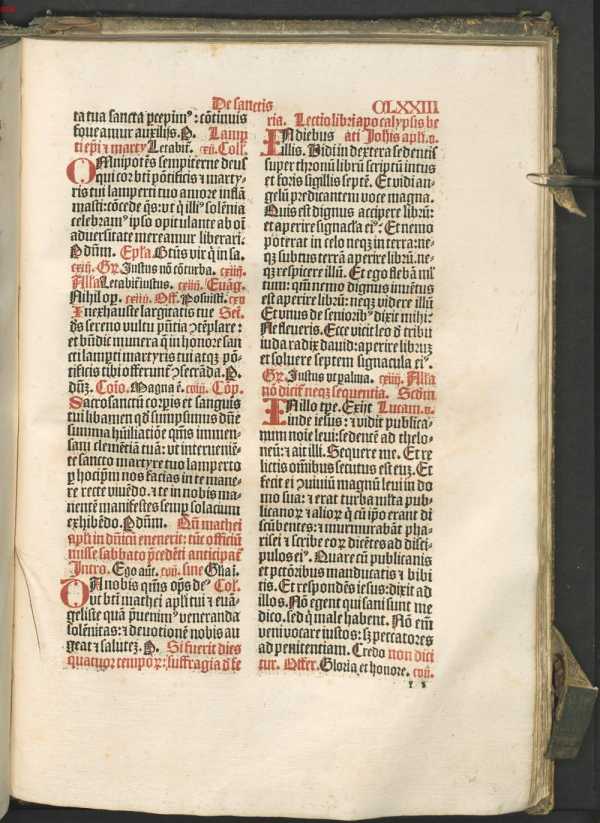 De sanctis
CLXXIII
ta tua sancta p̄cepim⁹: cōtinuis
foue amur auxilijs. P. Lamp
ti ep̄i ⁊ marty Letabit̄. cxi. Coll.
OMnipotēs sempiterne deus
qui cor bt̄i pōtificis ⁊ marty-
ris tui lamperti tuo amore inflā
masti: cōcede q̄s: vt q̄ illi⁹ solēnia
celebram⁹ ipso opitulante ab oī
aduersitate mereamur liberari.
P dūm. Ep̄la. Bt̄us vir q̄ in sa.
cxiij. Gr̄. Justus nō cōturba. cxiiij.
Alla Letabit̄ iustus. cxiiij. Euāg.
Nihil op. cxiiij. Off. Posuisti. cxv
Inexhauste largitatis tue Sec̄.
dn̄s sereno vultu p̄ntia ꝯtēplare:
et bn̄dic munera q̄ in honore san
cti lamp̱ti martyris tui atqꝫ pō-
tificis tibi offerunt̄ ꝯsecrāda. P.
dūꝫ. Coīo. Magna ē. cviij. Cōp.
Sacrosancti corp̱is et sanguis
tui libamen qd̄ sump̄simus dn̄e
summa hūiliatiōe q̄m̄s immen-
sam clemētiā tuā: vt interueniē-
te sancto martyre tuo lamperto
ꝑ hoc ip̄m nos facias in te mane-
re recte viuēdo. ⁊ te in nobis ma-
nentē manifestes semꝑ solacium
exhibēdo. P dūm. Qn̄ mathei
apl̄i in dn̄icū euenerit: tūc officiū
misse sabbato p̄cedēti anticipat̄
Intro. Ego aūt. cvij. sine Gl̄ia.
DA nobis q̄m̄s op̄s de⁹ Col.
vt bt̄i mathei apl̄i tui ⁊ euā-
geliste quā p̄uenim⁹ veneranda
solēnitas: ⁊ deuotionē nobis au
geat ⁊ salutēꝫ. P. Si fuerit dies
quatuor tempoꝝ: suffragia d̄ fe
ria. Lectio libri apocalypsis be
IN diebus ati Joh̄is apl̄i. v.
illis. Vidi in dextera sedentis
super thronū librū scriptū intus
et foris sigillis septē. Et vidi an-
gelū predicantem voce magna.
Quis est dignus accipere librū:
et aperire signacl̄a ei⁹: Et nemo
poterat in celo neqꝫ in terra: ne-
qꝫ subtus terrā aperire librū. ne-
qꝫ respicere illū. Et ego flebā ml̄
tum: qm̄ nemo dignus inuētus
est aperire librū: neqꝫ videre illū
Et vnus de seniorib⁹ dixit mihi:
Ne fleueris. Ecce vicit leo d̄ tribu
iuda radix dauid: aperire libruꝫ
et soluere septem signacula ei⁹.
Gr̄. Justus vt palma. cxiij. Alla
nō dicit̄ neqꝫ sequentia. Scd̄m
IN illo tp̄e. Exijt Lucam. v.
inde iesus: ⁊ vidit publica-
num noīe leui: sedentē ad thelo-
neū: ⁊ ait illi. Sequere me. Et re
lictis omnibus secutus est euꝫ. Et
fecit ei ꝯuiuiū magnū leui in do
mo sua: ⁊ erat turba ml̄ta pub-
licanoꝝ ⁊ alioꝝ q̄ cū ip̄o erant di
scūbentes: ⁊ murmurabāt pha-
risei ⁊ scribe eoꝝ dicētes ad disci-
pulos ei⁹. Quare cū publicanis
et pctōribus manducatis ⁊ bibi
tis. Et respondēs iesus: dixit ad
illos. Nō egent qui sani sunt me
dico. sed q̄ male habent. Nō em̄
veni vocare iustos: sꝫ peccatores
ad penitentiam. Credo non dici
tur. Offer. Gloria et honore. cvij.